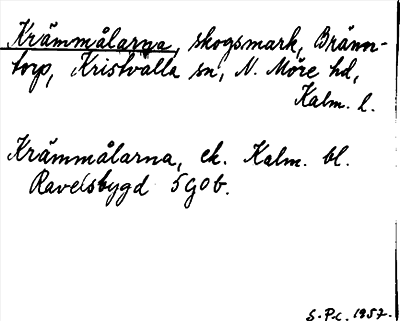 Krämmålarna, skogsmark, Bränn-
torp, Kristvalla sn, N. Möre hd,
Kalm. l.
Krämmålarna, ek. Kalm. bl.
Ravelsbygd 5G0b.
S. P-c. 1957.